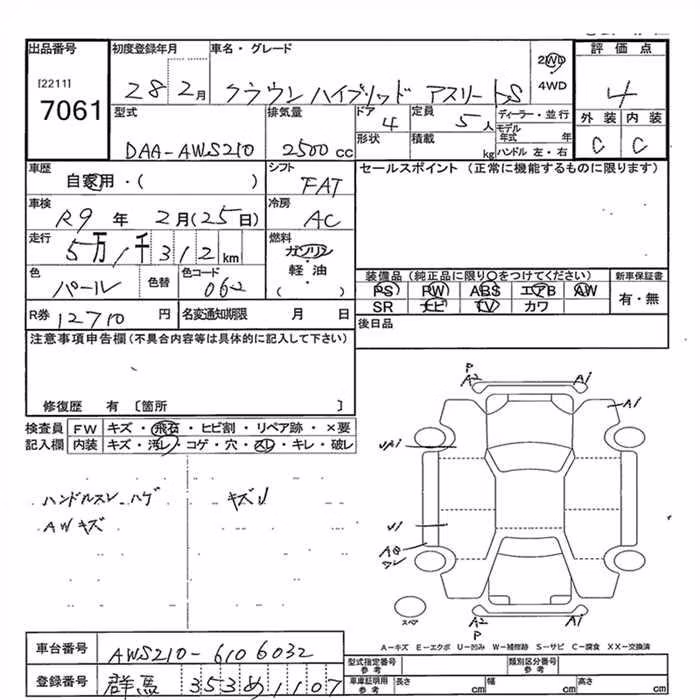 出品番号
[2211]
7061
初度登録年月
28 2月
車名・グレード
クラウンハイブリッド アスリートS
2WD
4WD
評価点
4
外装 内装
C C
型式
DAA-AWS210
排気量
2500cc
ドア
4
定員
5人
形状
積載
kg
ディーラー・並行
モデル年式 年
ハンドル 左・右
車歴
自家用・( )
シフト
FAT
セールスポイント (正常に機能するものに限ります)
車検
R9年 2月(25日)
冷房
AC
走行
5万1千312km
燃料
ガソリン
軽・油
( ・ )
色
パール
色替
色コード
062
装備品(純正品に限り○をつけてください)
PS PW ABS エアB AW
SR ナビ TV カワ
新車保証書
有・無
R券 12710円
名変通知期限 月 日
後日品
注意事項申告欄(不具合内容等は具体的に記入して下さい)
修復歴 有〔箇所 〕
検査員記入欄
FW キズ・飛石・ヒビ割・リペア跡・×要
内装 キズ・汚レ・コゲ・穴・スレ・キレ・破レ
ハンドルスレ ハゲ
キズU
AWキズ
P
A2 A1
A1
UA1
U1
A2 A1
P
スペア
A-キズ E-エクボ U-凹み W-補修跡 S-サビ C-腐食 XX-交換済
車台番号
AWS210-6106032
登録番号
群馬 353め1107
型式指定番号
参考
類別区分番号
参考
車庫証明用
参考
長さ cm
幅 cm
高さ cm